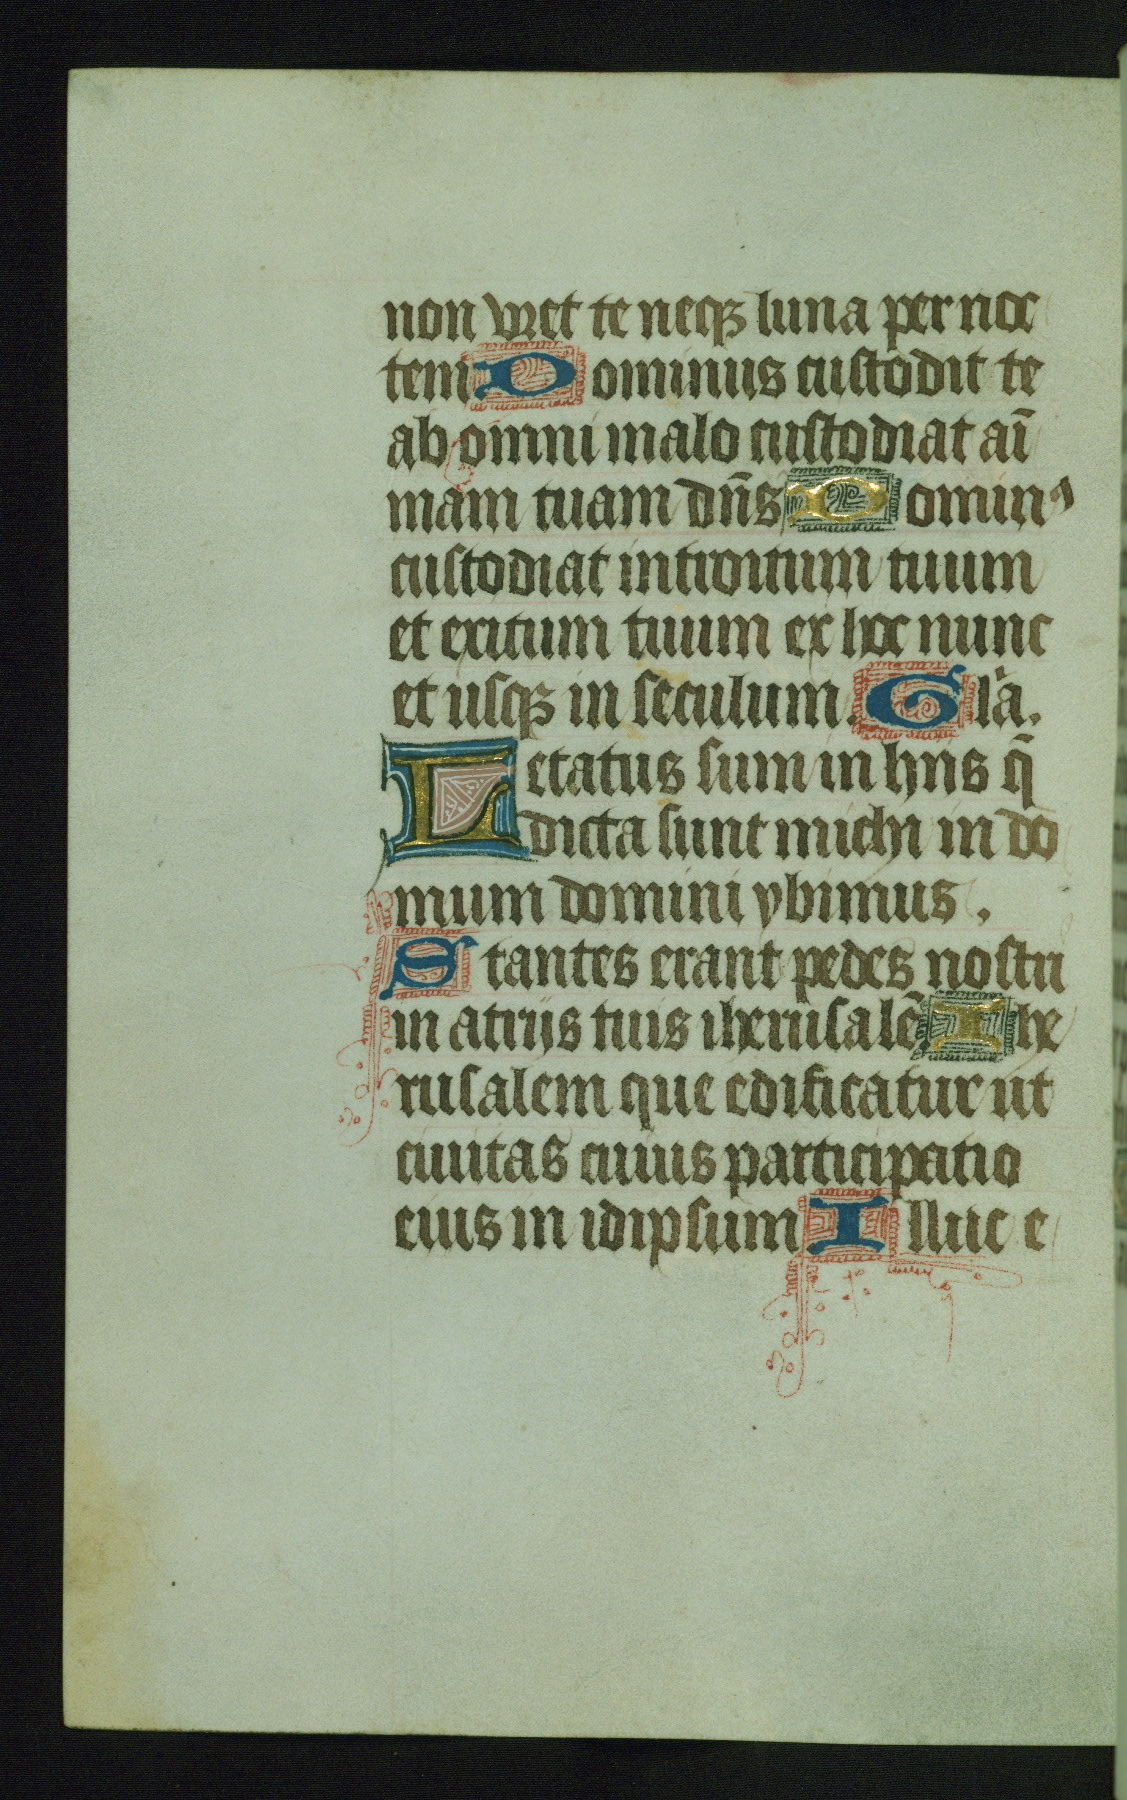 non vret te neqꝫ luna per noc
tem Dominus custodit te
ab omni malo custodiat aī
mam tuam dn̄s Dominꝰ
custodiat introitum tuum
et exitum tuum ex hoc nunc
et usqꝫ in seculum. Gl'a.
Letatus sum in hijs q̄
dicta sunt michi in do
mum domini ybimus.
Stantes erant pedes nostri
in atrijs tuis iherusalē. Ihe
rusalem que edificatur ut
ciuitas cuius participatio
eius in idipsum Illuc e